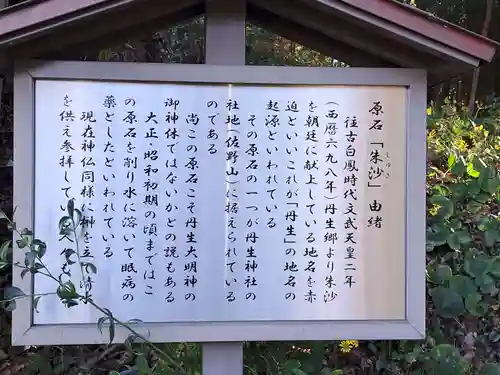 原石「朱沙」由緒
しゅさ
往古白鳳時代文武天皇二年
(西暦六九八年)丹生郷より朱沙
を朝廷に献上している地名を赤
迫といいこれが「丹生」の地名の
起源といわれている
その原石の一つが丹生神社の
社地(佐野山)に据えられている
のである
尚この原石こそ丹生大明神の
御神体ではないかとの説もある
大正・昭和初期の頃まではこ
の原石を削り水に溶いて眼病の
薬としたといわれている
現在神仏同様に榊を立
を供え参拝している人も